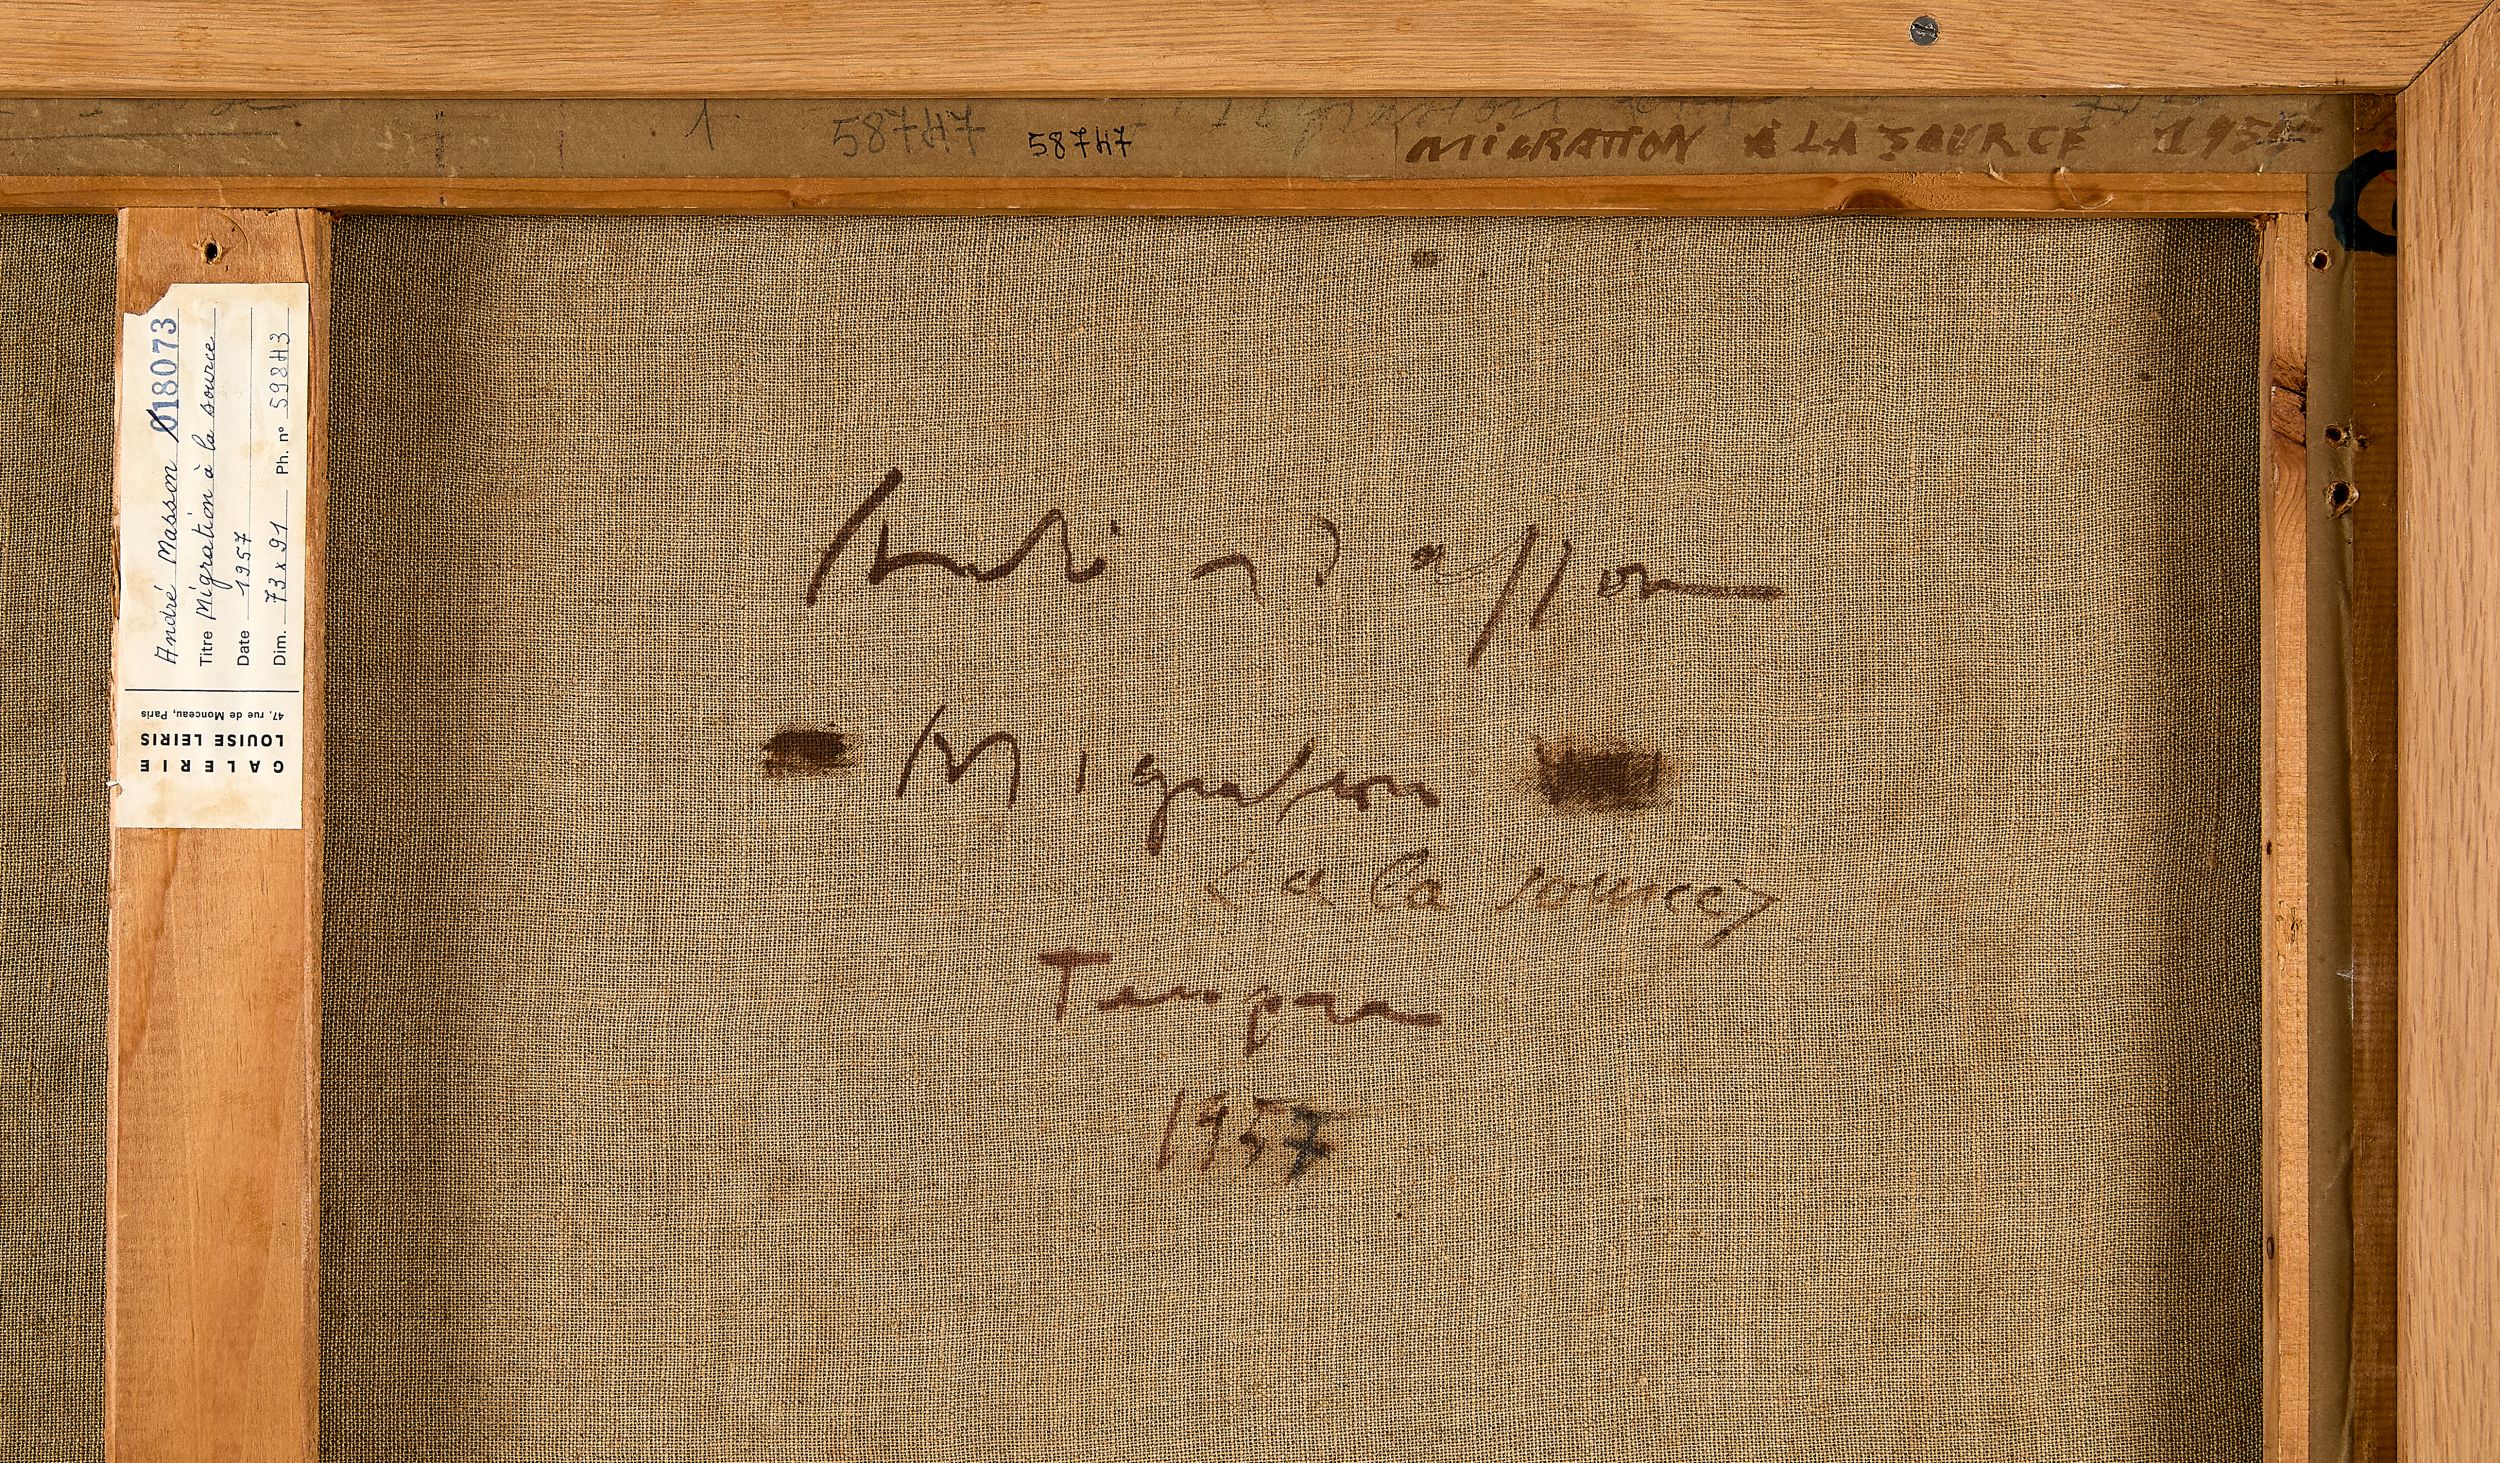 1 58747 58747
MIGRATION À LA SOURCE 1957
André Masson 018073
Titre Migration à la source
Date 1957
Dim. 73 x 91 Ph. n° 59843
GALERIE
LOUISE LEIRIS
47, rue de Monceau, Paris
André Masson
Migration
(à la source)
Tempera
1957